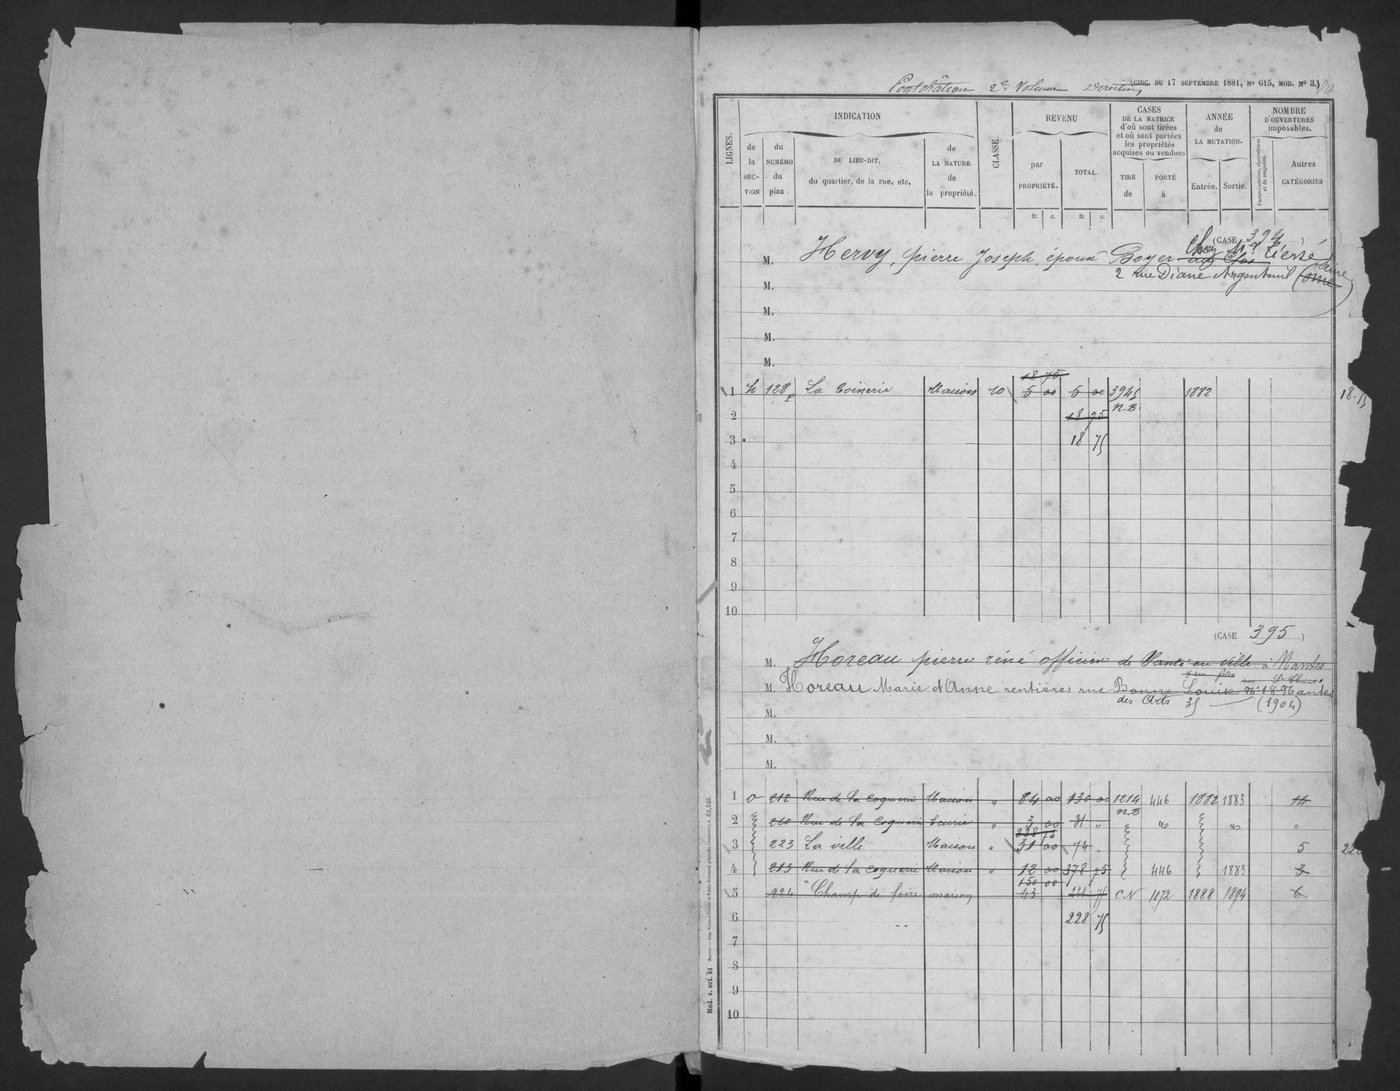 Pontchâteau 2e Volume Direction (CIRC. DU 17 SEPTEMBRE 1881, No 615, MOD. No 3.)
LIGNES. INDICATION CLASSE REVENU CASES DE LA MATRICE d'où sont tirées et où sont portées les propriétés acquises ou vendues ANNÉE de LA MUTATION. NOMBRE D'OUVERTURES imposables.
de la SECTION du NUMÉRO du plan. DU LIEU-DIT, du quartier, de la rue, etc. de LA NATURE de la propriété. par PROPRIÉTÉ. TOTAL. TIRÉ de PORTÉ à Entrée. Sortie. Autres CATÉGORIES
fr. c. fr. c.
(CASE 394)
M. Hervy, pierre Joseph, époux Boyer chez Mr Tiersé
M. 2 rue Diane Argenteuil
M.
M.
M.
18 75
1 h 128p La Coinerie Maison 10 5 00 5 00 394 1882 18.75
2 18 75 N.B.
3 18 75
4
5
6
7
8
9
10
(CASE 395)
M. Horeau pierre réné officier de Santé en ville à Nantes
M. Horeau Marie et Anne rentières rue Bonne Louise No 18 Nantes
des Arts 35 (1904)
M.
M.
M.
1 O 212 Rue de la Coquerie Maison " 84 00 130 00 1214 446 1882 1883 14
2 260 Rue de la Coquerie Ecurie " 3 00 31 " N.B " " "
3 223 La ville Maison " 31 00 74 5
4 213 Rue de la Coquerie Maison " 12 00 378 75 446 1883 3
150 00
5 226 Champ de foire maison 43 CN 1072 1888 1894 6
6 228 75
7
8
9
10
Mod. 4. oct. 81